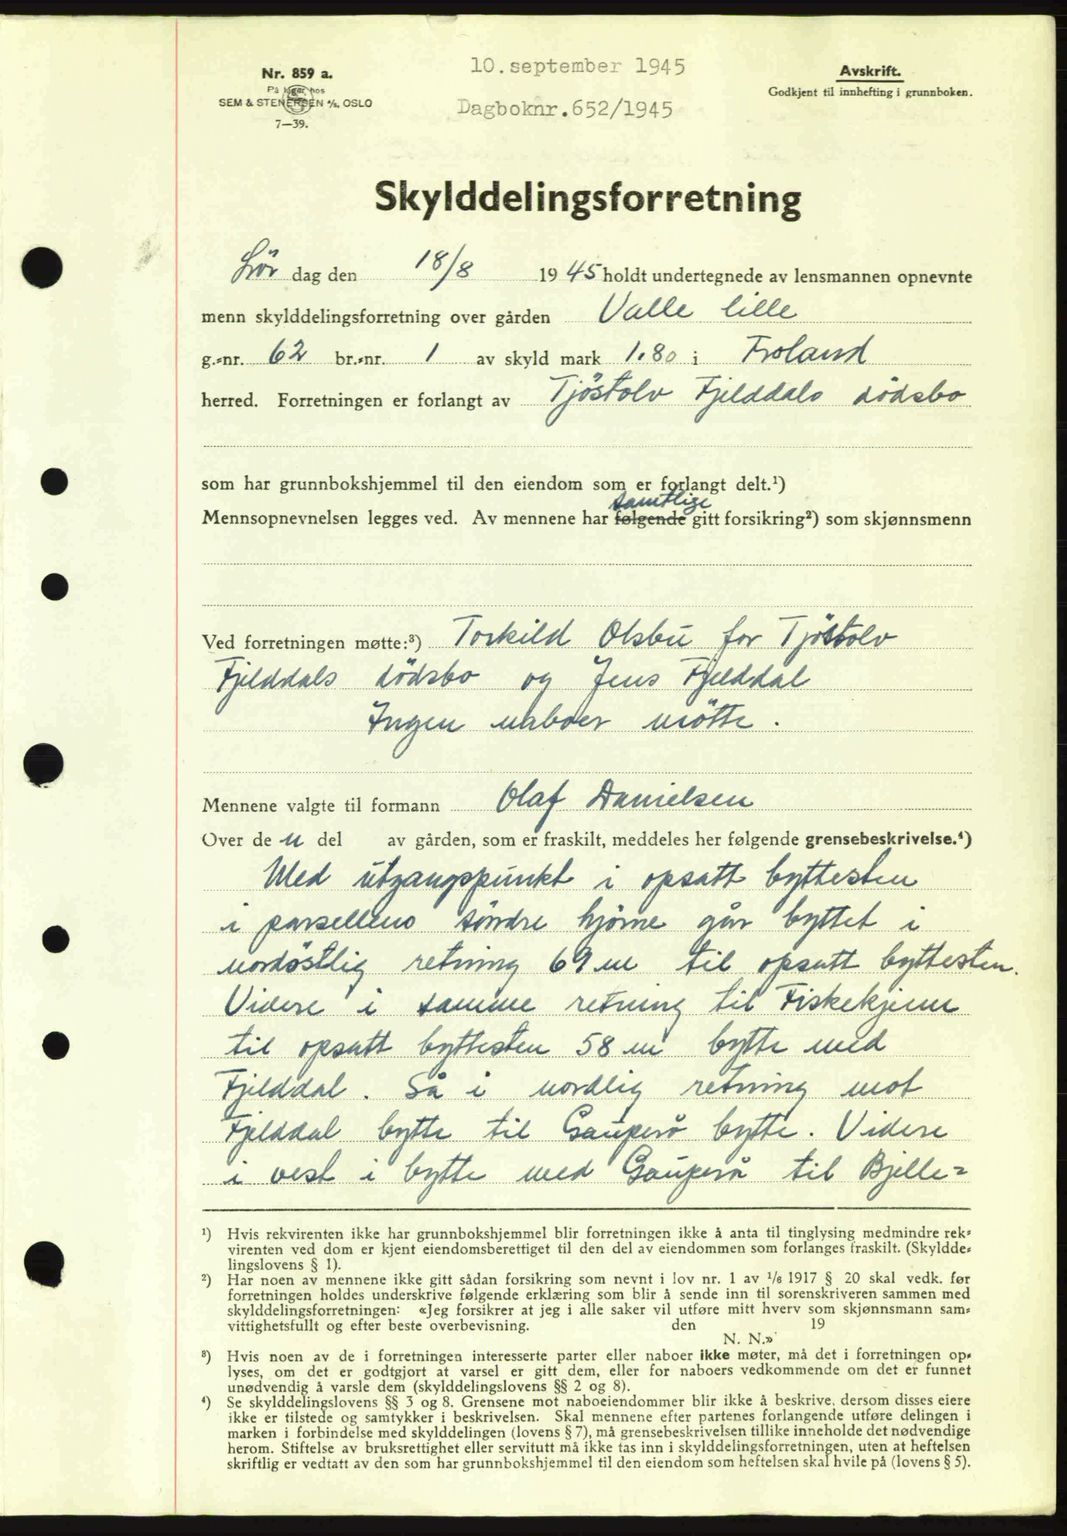 Nr. 859 a.
På lager hos
SEM & STENERSEN A/S. OSLO
7—39.
10. september 1945
Dagboknr. 652/1945
Avskrift.
Godkjent til innhefting i grunnboken.
Skylddelingsforretning
Lör dag den 18/8 1945 holdt undertegnede av lensmannen opnevnte
menn skylddelingsforretning over gården Valle lille
g.-nr. 62 br.-nr. 1 av skyld mark 1.80 i Froland
herred. Forretningen er forlangt av Tjöstolv Fjelddals dödsbo
som har grunnbokshjemmel til den eiendom som er forlangt delt.¹)
samtlige
Mennsopnevnelsen legges ved. Av mennene har følgende gitt forsikring²) som skjønnsmenn
Ved forretningen møtte:³) Torkild Olsbu for Tjöstolv
Fjelddals dödsbo og Jens Fjelddal
Ingen naboer mötte.
Mennene valgte til formann Olaf Danielsen
Over de n del av gården, som er fraskilt, meddeles her følgende grensebeskrivelse.⁴)
Med utgangspunkt i opsatt byttesten
i parsellens söndre hjörne går byttet i
nordöstlig retning 69 m til opsatt byttesten.
Videre i samme retning til Fiskekjenn
til opsatt byttesten 58 m bytte med
Fjelddal. Så i nordlig retning mot
Fjelddal bytte til Gauperå bytte. Videre
i vest i bytte med Gauperå til Bjelle=
¹) Hvis rekvirenten ikke har grunnbokshjemmel blir forretningen ikke å anta til tinglysing medmindre rek-
virenten ved dom er kjent eiendomsberettiget til den del av eiendommen som forlanges fraskilt. (Skyldde-
lingslovens § 1).
²) Har noen av mennene ikke gitt sådan forsikring som nevnt i lov nr. 1 av 1/6 1917 § 20 skal vedk. før
forretningen holdes underskrive følgende erklæring som blir å sende inn til sorenskriveren sammen med
skylddelingsforretningen: «Jeg forsikrer at jeg i alle saker vil utføre mitt hverv som skjønnsmann sam-
vittighetsfullt og efter beste overbevisning. den 19
N. N.»
³) Hvis noen av de i forretningen interesserte parter eller naboer ikke møter, må det i forretningen op-
lyses, om det er godtgjort at varsel er gitt dem, eller for naboers vedkommende om det er funnet
unødvendig å varsle dem (skylddelingslovens §§ 2 og 8).
⁴) Se skylddelingslovens §§ 3 og 8. Grensene mot naboeiendommer blir ikke å beskrive, dersom disses eiere
ikke er tilstede og samtykker i beskrivelsen. Skal mennene efter partenes forlangende utføre delingen i
marken i forbindelse med skylddelingen (lovens § 7), må grensebeskrivelsen tillike inneholde det nødvendige
herom. Stiftelse av bruksrettighet eller servitutt må ikke tas inn i skylddelingsforretningen, uten at heftelsen
skriftlig er vedtatt av den som har grunnbokshjemmel til den eiendom som heftelsen skal hvile på (lovens § 5).